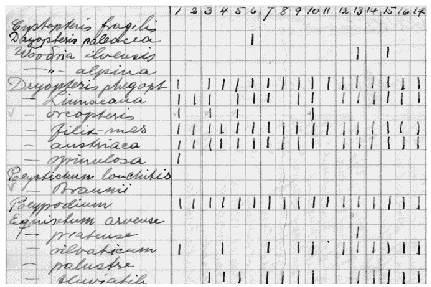 1 2 3 4 5 6 7 8 9 10 11 12 13 14 15 16 17
Cystopteris fragilis
Dryopteris paleacea
Woodsia ilvensis
— " — alpina
Dryopteris phegopt
— Linnaeana
— oreopteris
— filix mas
— austriaca
— spinulosa
Polystichum lonchitis
— Braunii
Polypodium
Equisetum arvense
— pratense
— silvaticum
— palustre
— fluviatile